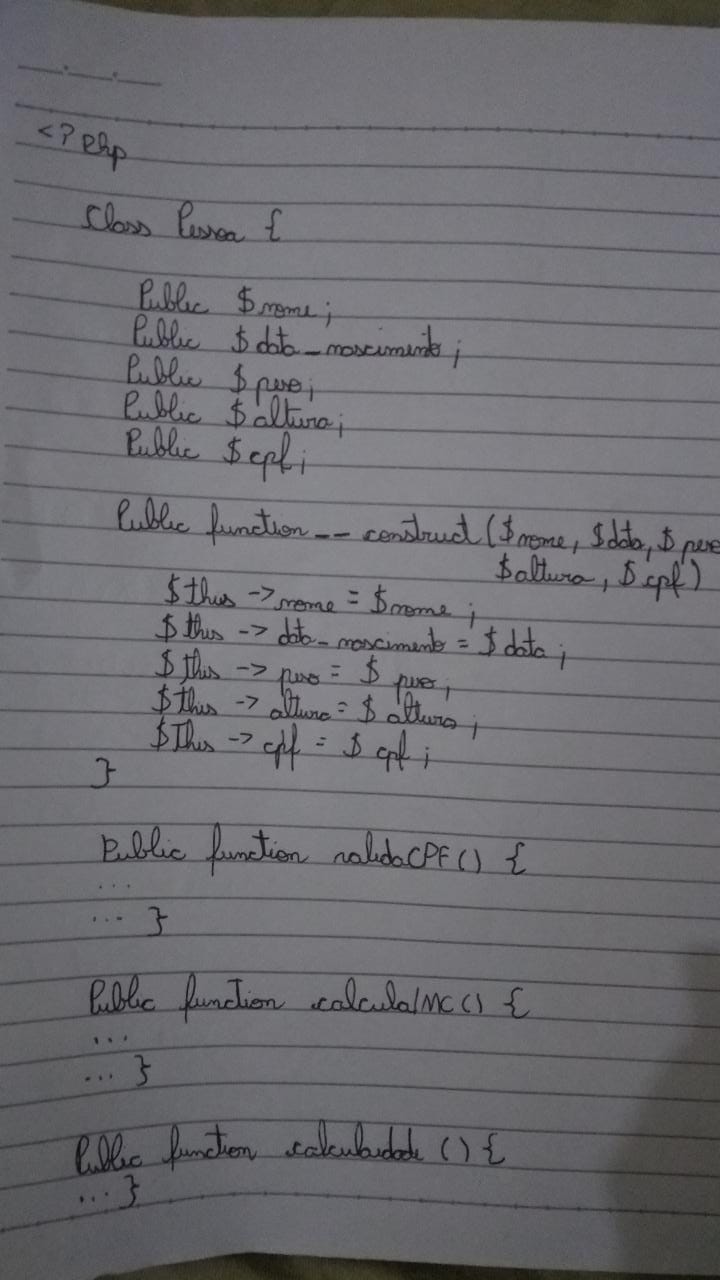 <?php
Class Pessoa {
Public $nome;
Public $data_nascimento;
Public $peso;
Public $altura;
Public $cpf;
Public function __construct($nome, $data, $peso
$altura, $cpf)
$this -> nome = $nome;
$this -> data_nascimento = $data;
$this -> peso = $peso;
$this -> altura = $altura;
$This -> cpf = $cpf;
}
Public function validaCPF() {
...
... }
Public function calculaIMC() {
...
... }
Public function calculaidade () {
... }